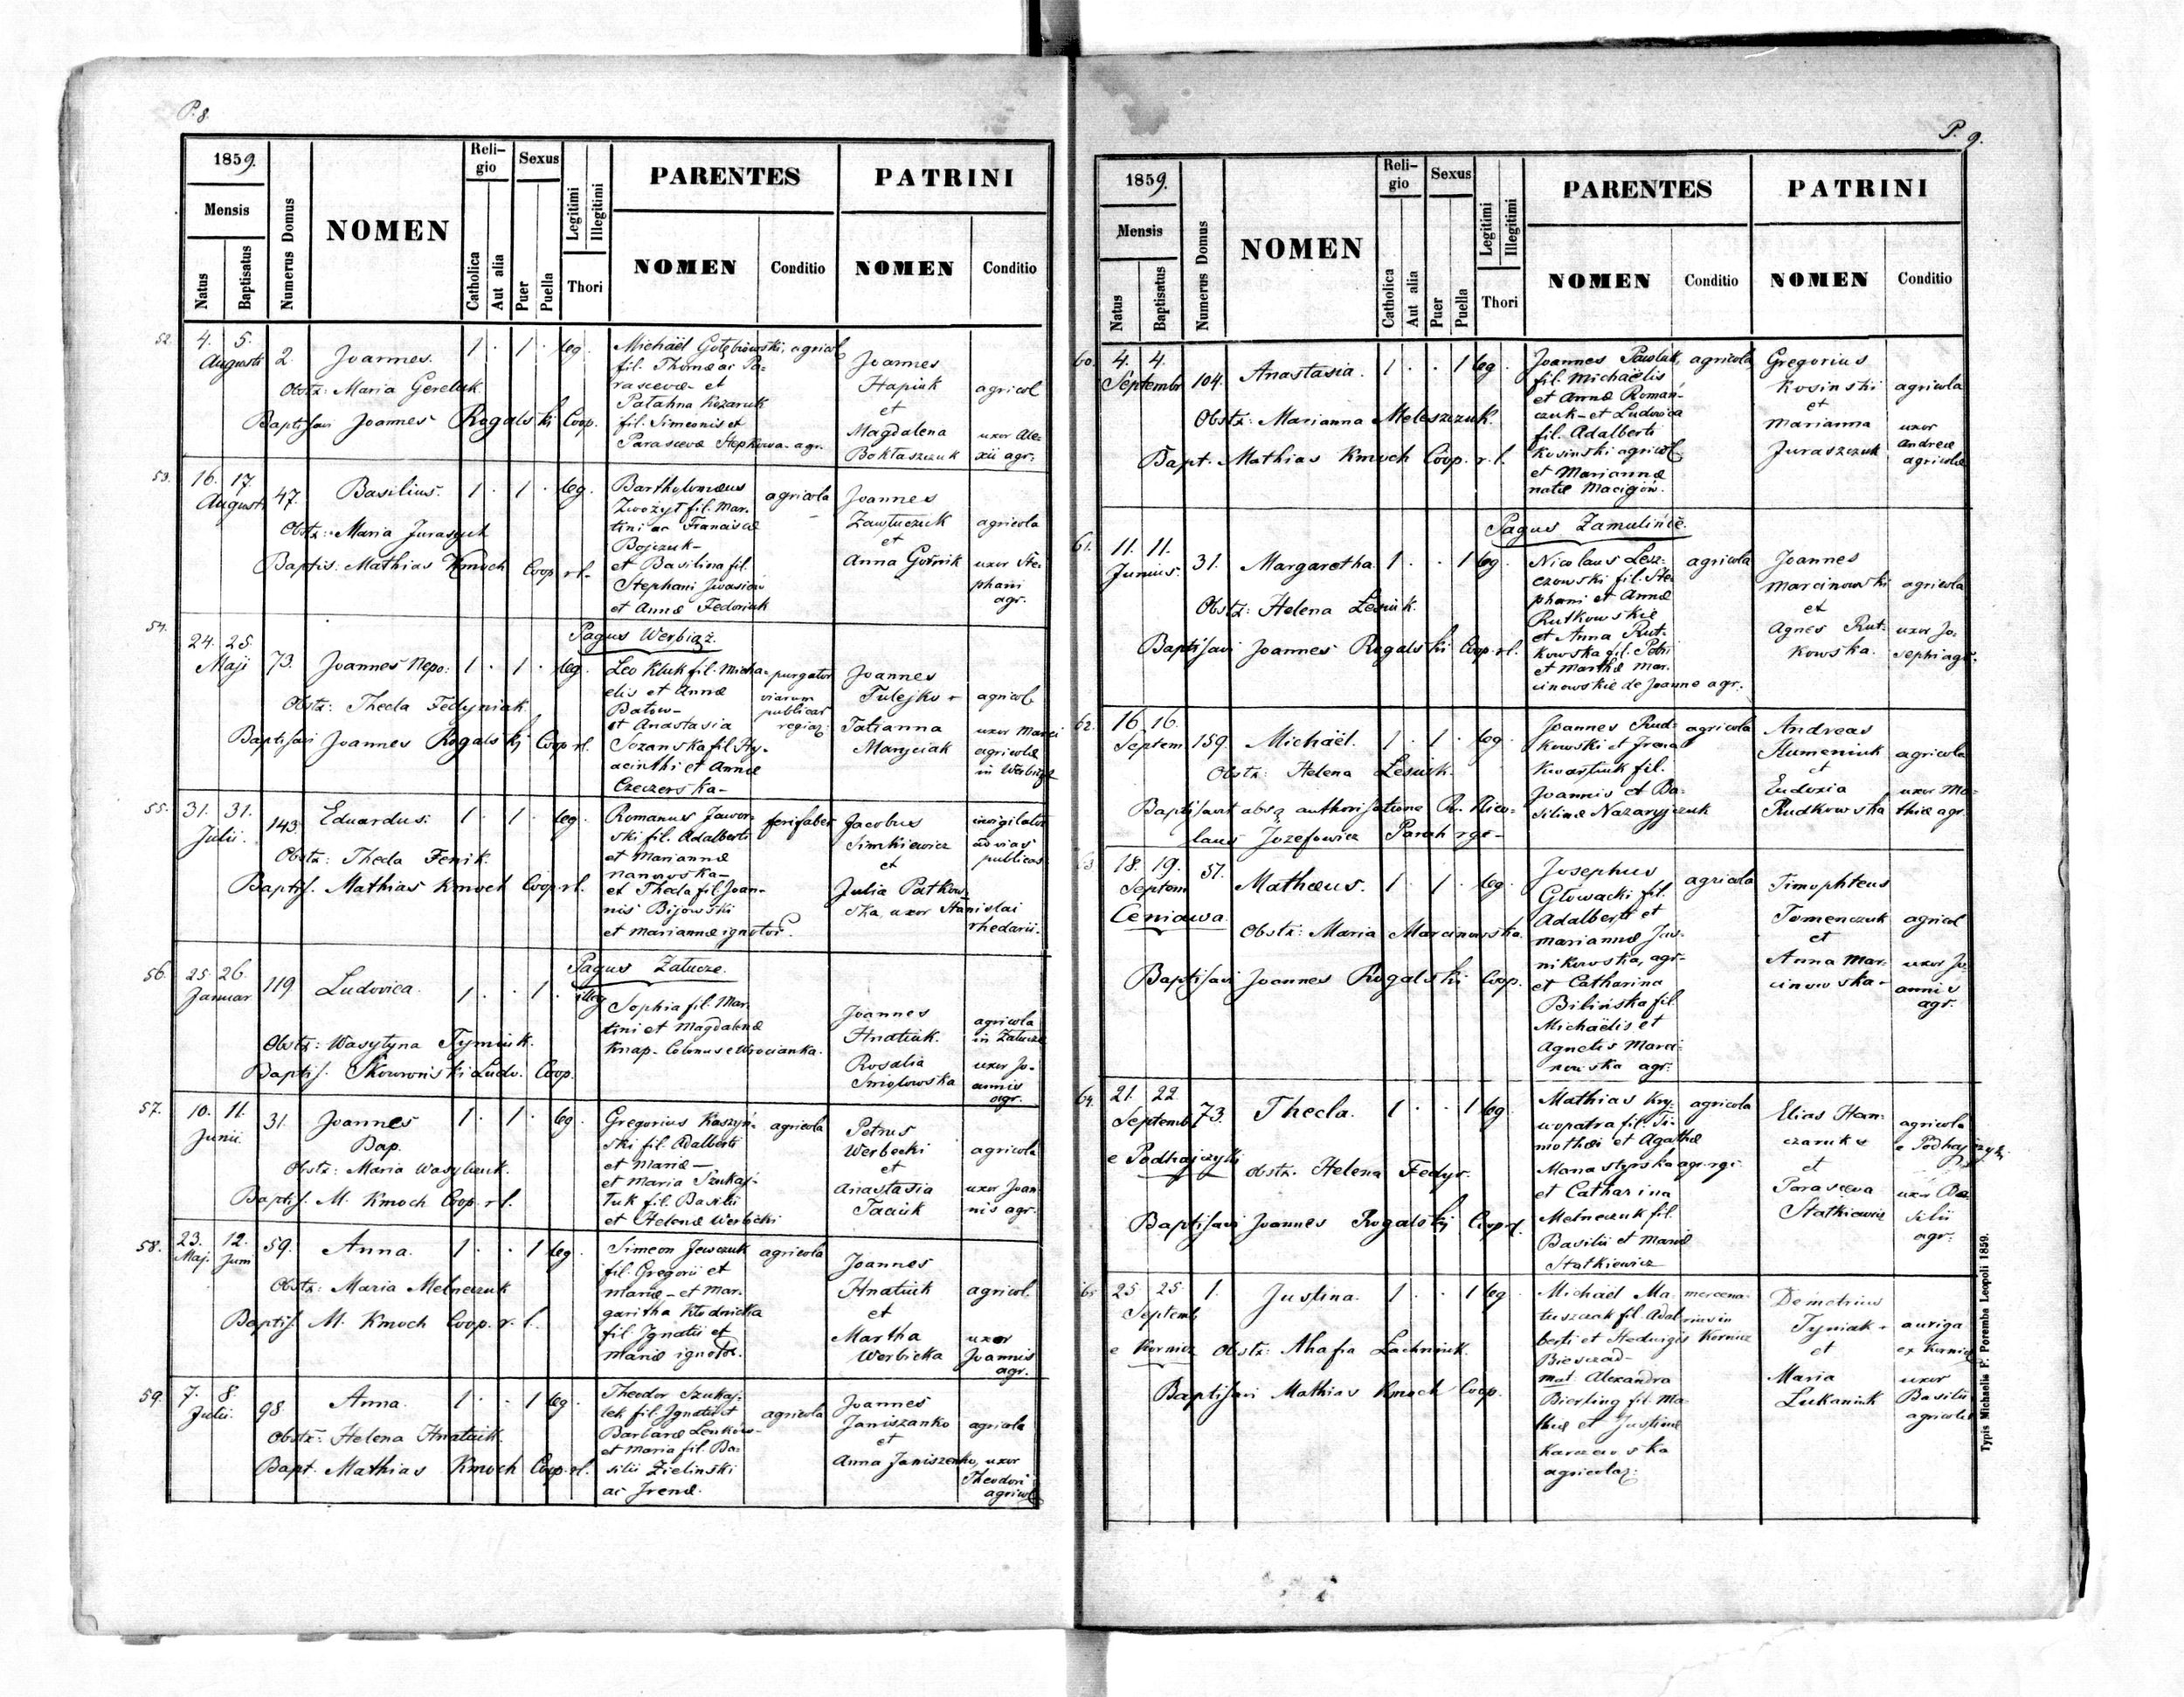 P. 8.
1859.
Mensis
Natus
Baptisatus
Numerus Domus
NOMEN
Religio
Catholica
Aut alia
Sexus
Puer
Puella
Legitimi
Illegitimi
Thori
PARENTES
NOMEN
Conditio
PATRINI
NOMEN
Conditio
52.
4. 5.
Augusti
2
Joannes.
1 . 1 . leg.
Obstz: Maria Gereluk
Baptisavi Joannes Rogalski Coop.
Michaël Gołębiowski, agricol
fil. Thomæ ac Pa-
rascevæ et
Patahna Kezaruk
fil. Simeonis et
Parascevæ Stepkowa agr.
Joannes
Hapiuk
et
Magdalena
Boktaszczuk
agricol
uxor Ale-
xii agr.
53.
16. 17.
August.
47.
Basilius.
1 . 1 . leg.
Obstz: Maria Juraszuk
Baptis: Mathias Kmoch Coop. rl.
Bartholomæus
Zwozyt fil. Mar-
tini ac Franciscæ
Bojczuk-
et Basilina fil.
Stephani Iwasiow
et Annæ Fedoriuk
agricola
Joannes
Zawtuczuk
et
Anna Gornik
agricola
uxor Ste-
phani
agr.
54.
Pagus Werbiąż.
24. 25.
Maji
73.
Joannes Nepo:
1 . 1 . leg.
Obstz: Thecla Fedyniak
Baptisavi Joannes Rogalski Coop rl.
Leo Kluk fil. Micha-
elis et Annæ
Batow-
et Anastasia
Sozanska fil. Hy-
acinthi et Annæ
Czeczerska-
purgator
viarum
publicar
regiar.
Joannes
Tulejko
Tatianna
Maryciak
agricol
uxor Marci
agricolæ
in Werbiąż
55.
31. 31.
Julii.
143.
Eduardus:
1 . 1 . leg.
Obstz: Thecla Fenik
Baptis. Mathias Kmoch Coop. rl.
Romanus Jawor-
ski fil. Adalberti
et Mariannæ
Nanowska-
et Thecla fil. Joan-
nis Bijowski
et Mariannæ ignotor.
ferifaber
Jacobus
Simkiewicz
et
Julia Patkow-
ska, uxor Stanislai
rhedarii.
invigilator
ad vias
publicas
56.
Pagus Załucze.
25. 26.
Januar
119
Ludovica.
1 . . 1 . illeg
Obstz: Wasytyna Tymiuk.
Baptis. Skowroński Ludo. Coop.
Sophia fil. Mar-
tini et Magdalenæ
Knap. Colonus e Wrocianka.
Joannes
Hnatiuk.
Rosalia
Smiglowska
agricola
in Załucze
uxor Jo-
annis
agr.
57.
10. 11.
Junii
31.
Joannes
Bap.
1 . 1 . leg
Obstz: Maria Wasylczuk.
Baptis. M. Kmoch Coop. rl.
Gregorius Kaszyń-
ski fil. Adalberti
et Mariæ-
et Maria Szukaj-
tuk fil. Basilii
et Helenæ Werbicki
agricola
Petrus
Werbecki
et
Anastasia
Taciuk
agricola
uxor Joan-
nis agr.
58.
23. 12.
Maj. Juni
59.
Anna.
1 . . 1 leg
Obstz: Maria Melneczuk
Baptis. M. Kmoch Coop. r. l.
Simeon Jewczuk
fil. Gregorii et
Mariæ- et Mar-
garitha Kłodnicka
fil. Ignatii et
Mariæ ignotor.
agricola
Joannes
Hnatiuk
et
Martha
Werbicka
agricol.
uxor
Joannis
agr.
59.
7. 8.
Julii.
98.
Anna.
1 . . 1 leg.
Obstz: Helena Hnatiuk.
Bapt. Mathias Kmoch Coop. rl.
Theodor Szukaj-
lek fil. Ignatii et
Barbaræ Lenków-
et Maria fil. Ba-
silii Zielinski
ac Irenæ.
agricola
Joannes
Janiszanko
et
Anna Janiszenko, uxor
Theodori
agricol
agricola
P. 9.
1859.
Mensis
Natus
Baptisatus
Numerus Domus
NOMEN
Religio
Catholica
Aut alia
Sexus
Puer
Puella
Legitimi
Illegitimi
Thori
PARENTES
NOMEN
Conditio
PATRINI
NOMEN
Conditio
60.
4. 4.
Septembr
104.
Anastasia.
1 . . 1 leg.
Obstz: Marianna Meleszczuk.
Bapt. Mathias Kmoch Coop. r. l.
Joannes Pawluk,
fil. Michaëlis
et Annæ Roman-
czuk- et Ludovica
fil. Adalberti
Kosinski agricol
et Mariannæ
natæ Macigow.
agricola
Gregorius
Kosinski
et
Marianna
Juraszczuk
agricola
uxor
Andreæ
agricolæ
Pagus Zamulińce.
61.
11. 11.
Junius.
31.
Margaretha
1 . . 1 leg.
Obstz: Helena Lesiuk.
Baptisavi Joannes Rogalski Coop. rl.
Nicolaus Lesz-
czowski fil. Ste-
phani et Annæ
Rutkowskie
et Anna Rut-
kowska fil. Petri
et Marthæ Mar-
cinowskie de Joanne agr.
agricola
Joannes
Marcinowski
et
Agnes Rut-
kowska.
agricola
uxor Jo-
sephi agr.
62.
16. 16.
Septem
159.
Michaël.
1 . 1 . leg.
Obstz: Helena Lesiuk.
Baptisavit absq authorisatione R. Nico-
laus Józefowicz Paroh rgr-
Joannes Rud-
kowski et Irena
Kwastiuk fil.
Joannis et Ba-
silinæ Nazaryjczuk
agricola
Andreas
Humeniuk
et
Eudoxia
Rudkowska
agricola
uxor Ma-
thiæ agr.
63
18. 19.
Septem
Ceniawa.
51.
Mathæus.
1 . 1 . leg.
Obstz: Maria Marcinowska.
Baptisavi Joannes Rogalski Coop.
Josephus
Głowacki fil.
Adalberti et
Mariannæ Jus-
nikowska, agr-
et Catharina
Bilińska fil.
Michaëlis et
Agnetis Marci-
nowska agr.
agricola
Timophteus
Tomenczuk
et
Anna Mar-
cinowska-
agricol
uxor Jo-
annis
agr.
64.
21. 22.
Septemb
e Podhajczyki
73.
Thecla.
1 . . 1 leg
obstz. Helena Fedyr.
Baptisavi Joannes Rogalski Coop rl.
Mathias Kry-
wopatra fil. Ti-
mothei et Agathæ
Monastyrska agr. rgi.
et Catharina
Melneczuk fil.
Basilii et Mariæ
Statkiewicz
agricola
Elias Han-
czaruk
et
Parasceva
Statkiewicz
agricola
e Podhajczyki
uxor Ba-
silii
agr.
65
25. 25.
Septemb
e Kornicz
1.
Justina.
1 . . 1 leg.
Obstz: Ahafia Lachniuk.
Baptisavi Mathias Kmoch Coop.
Michaël Ma-
tuszczak fil. Adal-
berti et Hedwigis
Biesczad-
mat. Alexandra
Bierling fil. Ma-
thiæ et Justinæ
Karczewska
agricolar.
mercena-
rius in
Kornicz
Demetrius
Tyniak
et
Maria
Lukaniuk
auriga
ex Kornicz
uxor
Basilii
agricolæ
Typis Michaelis F. Poremba Leopoli 1859.